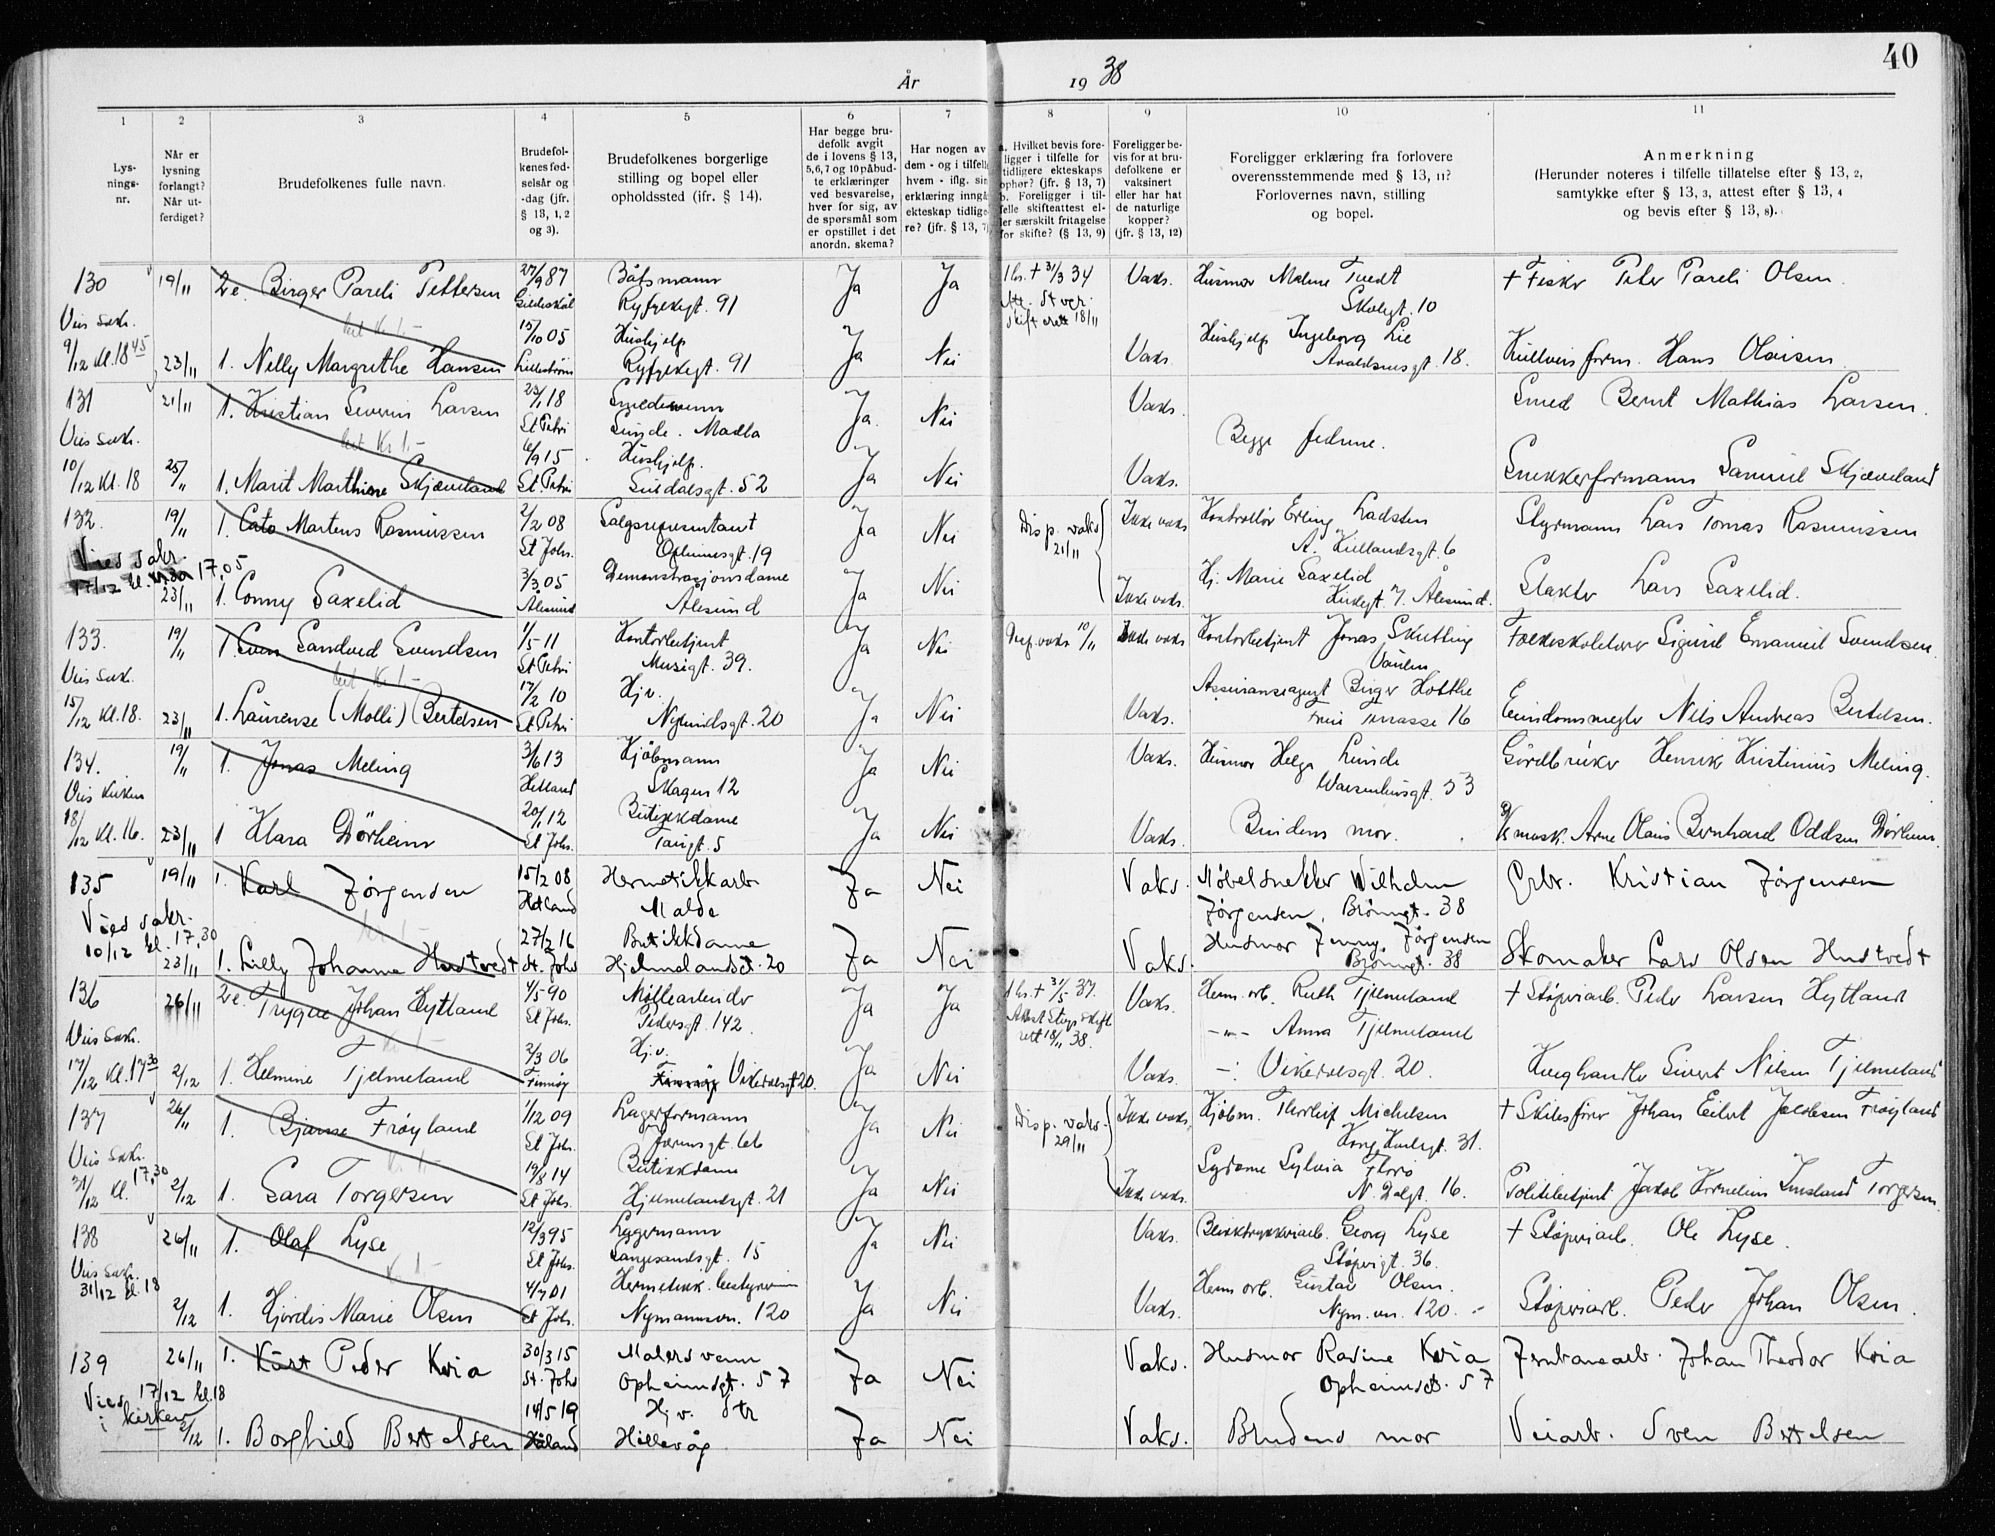 40
År 1938
1 2 3 4 5 6 7 8 9 10 11
Lysnings-nr.
Når er lysning forlangt? Når utferdiget?
Brudefolkenes fulle navn.
Brudefolkenes fødselsår og -dag (jfr. § 13, 1, 2 og 3).
Brudefolkenes borgerlige stilling og bopel eller opholdssted (jfr. § 14).
Har begge brudefolk avgit de i lovens § 13, 5, 6, 7 og 10 påbudte erklæringer ved besvarelse, hver for sig, av de spørsmål som er opstillet i det anordn. skema?
Har nogen av dem - og i tilfelle hvem - iflg. sin erklæring inngå ekteskap tidligere? (jfr. § 13, 7)
a. Hvilket bevis foreligger i tilfelle for tidligere ekteskaps ophør? (jfr. § 13, 7) b. Foreligger i tilfelle skifteattest eller særskilt fritagelse for skifte? (§ 13, 9)
Foreligger bevis for at brudefolkene er vaksinert eller har hat de naturlige kopper? (jfr. § 13, 12)
Foreligger erklæring fra forlovere overensstemmende med § 13, 11? Forlovernes navn, stilling og bopel.
Anmerkning (Herunder noteres i tilfelle tillatelse efter § 13, 2, samtykke efter § 13, 3, attest efter § 13, 4 og bevis efter § 13, 8).
130 19/11 2e. Birger Pareli Pettersen 27/9 87 Gildeskål Båtsmann Ryfylkegt. 91 Ja Ja 31/3 34 Vaks. Husmor Malene Tvedt Skolegt. 10 † Fisker Peder Pareli Olsen
Skifterett 18/11
Vies sakr. 9/12 kl. 18 45 23/11 1. Nelly Margrethe Hansen 15/10 05 Lillestrøm Hushjelp Ryfylkegt. 91 Ja Nei Vaks. Hushjelp Ingeborg Lie Avaldsnesgt. 18. Hans Olaisen
131 21/11 1. Kristian Severin Larsen 23/1 18 St. Petri Smedsvenn Sunde. Madla Ja Nei Vaks. Begge fedrene. Smed Bernt Mathias Larsen.
Vies sakr. 10/12 kl. 18 25/11 1. Marit Marthine Skjæveland 6/9 15 St. Petri Hushjelp. Suldalsgt. 52 Ja Nei Vaks. Snekkerformann Samuel Skjæveland
132. 19/11 1. Cato Martens Rasmussen 2/2 08 St. Johs. Salgsrepresentant Opheimsgt. 19 Ja Nei Disp. vaks 21/11 Ikke vaks Kontrollør Erling Ladsten A. Kiellandsgt. 6 Styrmann Lars Tomas Rasmussen
Vies sakr. 17/12 kl. 17,05 23/11 1. Conny Saxelid 3/3 05 Ålesund Demonstrasjonsdame Ålesund Ja Nei Ikke vaks. Hj. Marie Saxelid Kirkegt. 7. Ålesund. Slakter Lars Saxelid.
133. 19/11 1 Sven Sandved Svendsen 1/5-11 St. Petri Kontorbetjent Musegt. 39. Ja Nei vaks 10/11 Ikke vaks Kontorbetjent Jonas Skutling Vaulen Folkeskolelærer Sigurd Emanuel Svendsen.
Vies sakr. 15/12 kl. 18. 23/11 1. Laurense (Molli) Bertelsen 17/2 10 St. Petri Hj.v. Nylundsgt. 20 Ja Nei Vaks. Assuranseagent Birger Hotthe Terrasse 16 Eiendomsmegler Nils Andreas Bertelsen.
134. 19/11 1. Jonas Meling 3/6 13 Hetland Kjøbmann Skagen 12 Ja Nei Vaks. Husmor Helga Lunde Waisenhusgt. 53 Gårdbruker Henrik Kristinius Meling.
Vies kirken 18/12 kl. 16. 23/11 1 Klara Dörheim 20/1 12 St. Johs. Butikkdame Tangt. 5 Ja Nei Vaks. Brudens mor. musk. Arne Olaus Bernhard Oddsen Dørheim
135 19/11 1. Karl Jørgensen 15/2 08 Hetland Hermetikkarb. Malde Ja Nei Vaks. Møbelsnekker Wilhelm Jørgensen, Brönngt. 38 Grbr. Kristian Jørgensen
Vies sakr. 10/12 kl. 17,30 23/11 1. Lilly Johanne Hustvedt 27/2 16 St. Johs Butikkdame Hjelmelandsgt. 20 Ja Nei Vaks. Husmor Jenny Jørgensen Brönngt. 38 Skomaker Lars Olsen Hustvedt
136 26/11 2e. Trygve Johan Hytland 4/5-90 St. Johs. Møllearbeider Pedersgt. 142. Ja Ja 31/5 37. Attest Stvgr. skifterett 18/11 38. Vaks. Herm. arb. Ruth Tjelmeland † Støperiarb. Peder Larsen Hytland
-"- Anna Tjelmeland
Vies sakr. 17/12 kl. 17 30 2/12 1. Helmine Tjelmeland 2/3 06 Finnøy Hj.v. Vikedalsgt 20. Ja Nei Vaks. -: Vikedalsgt. 20. Sivert Nilsen Tjelmeland
137 26/11 1. Bjarne Frøyland 1/12 09 St Johs. Lagerformann Jærnsgt. 66 Ja Nei Disp. vaks. 29/11 Ikke vaks. Kjøbm. Thorleif Michelsen Kong Haralsgt. 31. † Skibsfører Johan Eilert Jacobsen Frøyland
Vies sakr. 31/12 kl. 17,30 2/12 1. Sara Torgersen 19/8 14 St Johs. Butikkdame Hjelmelandsgt. 21 Ja Nei Ikke vaks. Sydame Sylvia Thorø N. Dalgt. 16. Politibetjent Jakob Kornelius Imsland Torgersen
138 26/11 1. Olaf Lyse 12/3 95 St Johs. Lagermann Langesandsgt. 15 Ja Nei Vaks. Blikktrykkeriarb. Georg Lyse Støperigt. 36. † Støperiarb. Ole Lyse.
Vies sakr. 31/12 kl. 18 2/12 1. Hjördis Marie Olsen 4/7 01 St Johs. Hermetikk. bestyrerinne Nymannsvn. 120 Ja Nei Vaks. Herm arb. Gustav Olsen. Nym. vn. 120. Støperiarb. Peder Johan Olsen.
139 26/11 1. Kåre Peder Kvia 30/3 15 St. Johs Malersvenn Opheimsgt. 57 Ja Nei Vaks. Husmor Rasine Kvia Opheimsgt. 57 Jernbanearb. Johan Theodor Kvia
Vies 17/12 kl. 18 i kirken 2/12 1. Borghild Bertelsen 14/5 19 Håland Hj.v. Str Hillevåg Ja Nei Vaks. Brudens mor Veiarb. Sven Bertelsen